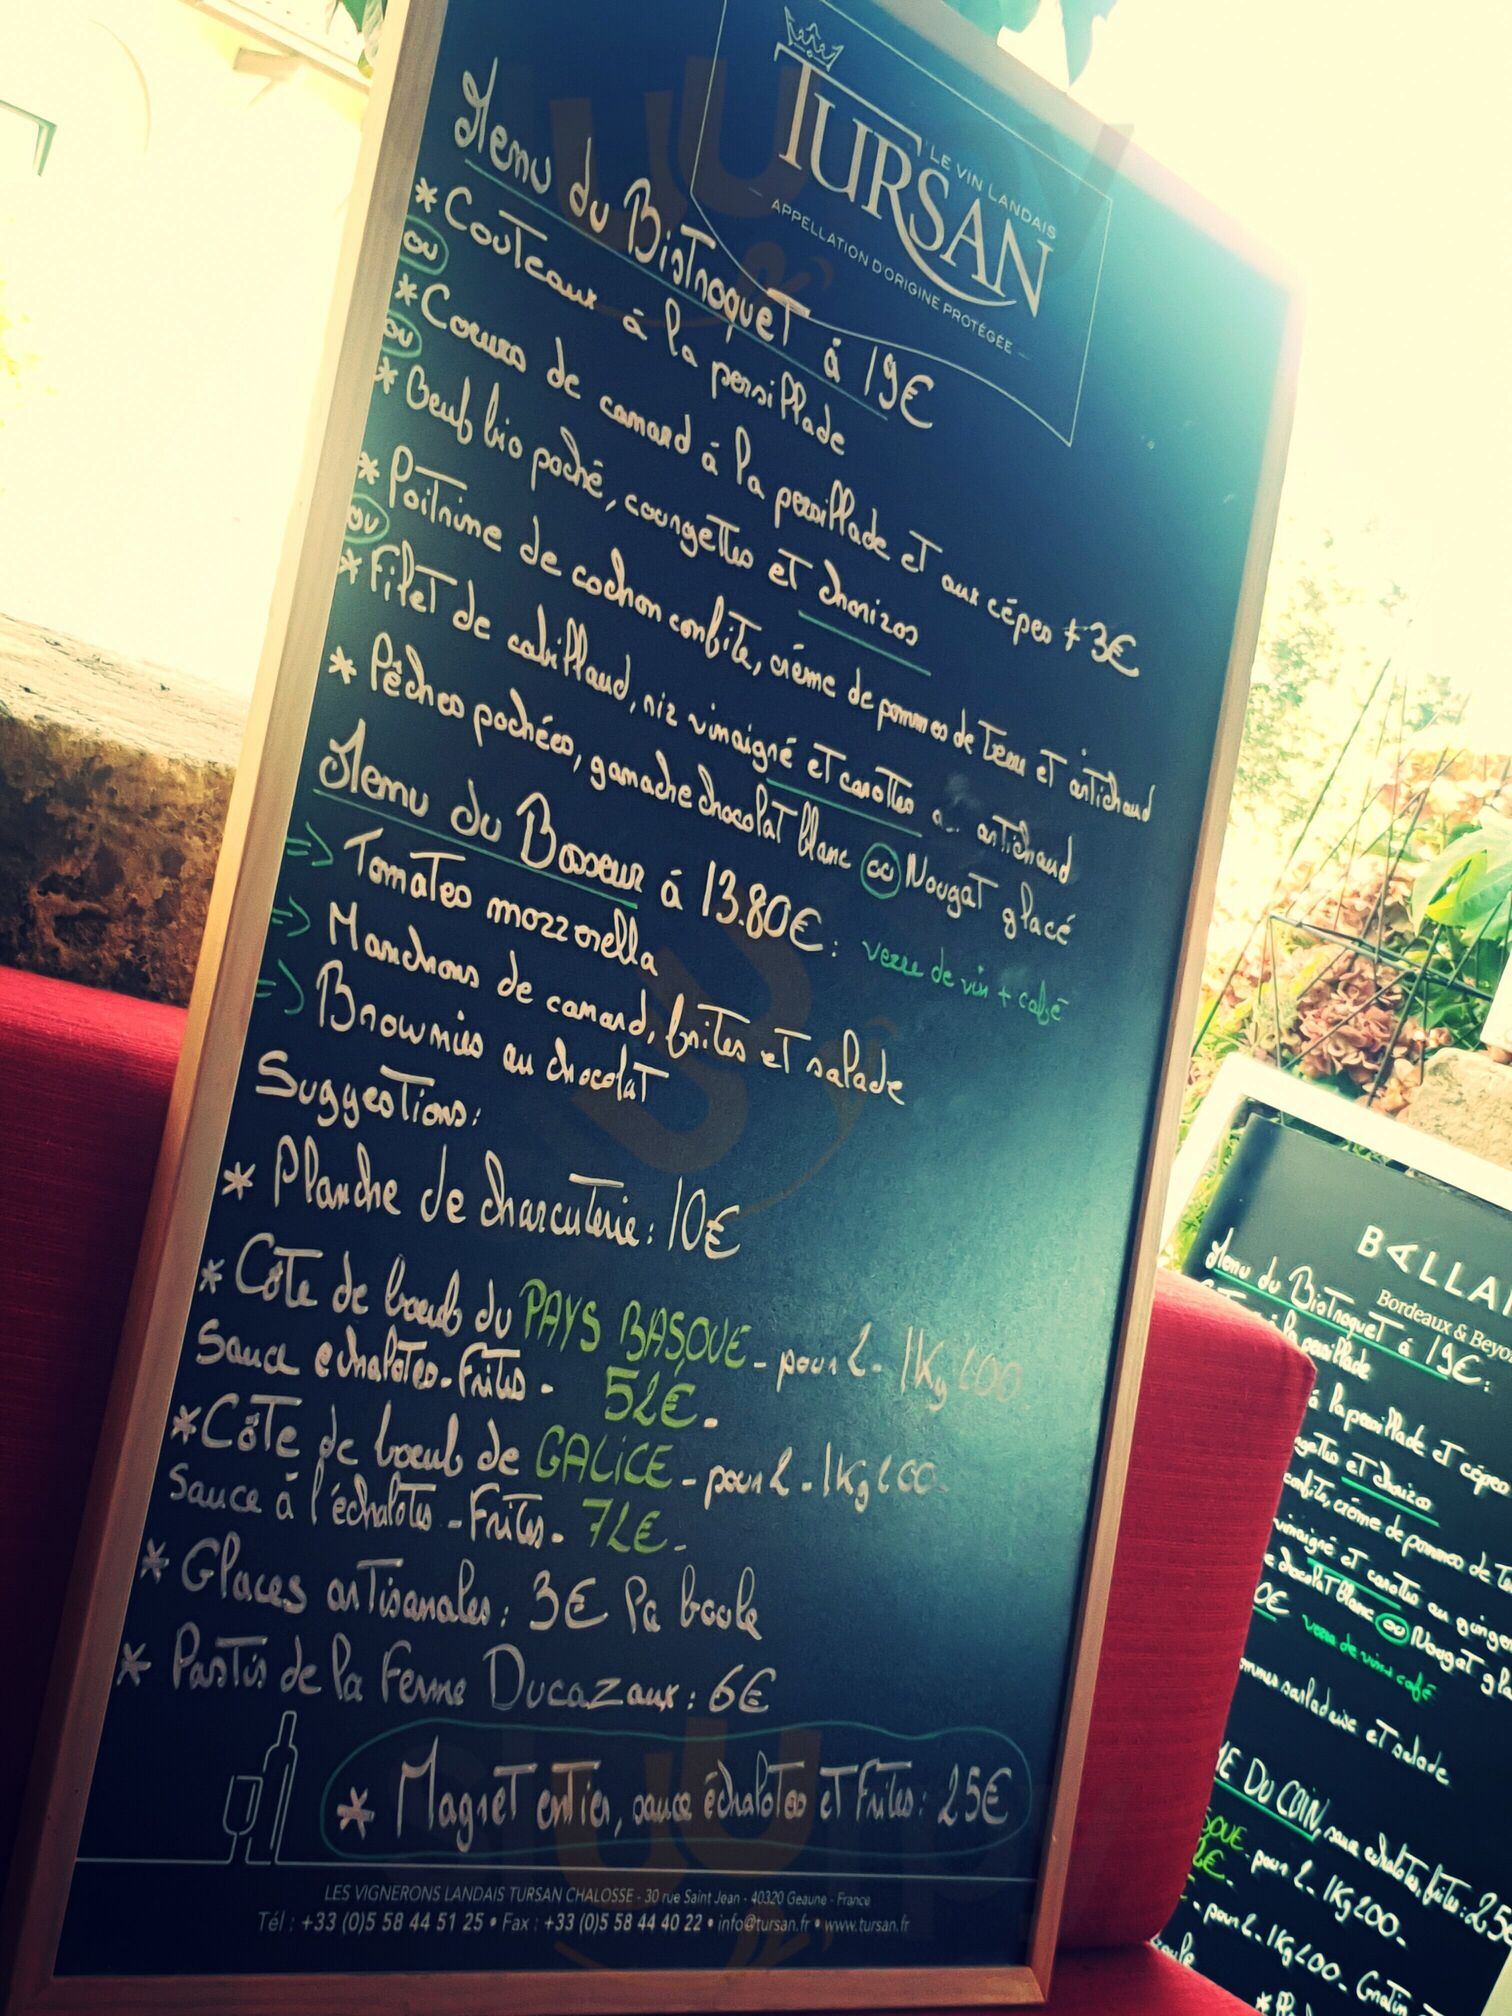 TURSAN
LE VIN LANDAIS
APPELLATION D'ORIGINE PROTÉGÉE
Menu du Bistroquet à 19€
* Couteaux à la persillade
ou
* Coeurs de canard à la persillade et aux cépes + 3€
ou
* Oeuf bio poché, courgettes et chorizos
* Poitrine de cochon confite, crème de pommes de terre et artichaud
ou
* Filet de cabillaud, riz vinaigré et carottes artichaud
* Pêches pochées, ganache chocolat blanc ou Nougat glacé
Menu du Bosseur à 13.80€ : verre de vin + café
=> Tomates mozzorella
=> Manchons de canard, frites et salade
=> Brownies au chocolat
Suggestions:
* Planche de charcuterie : 10€
* Côte de boeuf du PAYS BASQUE - pour 2 - 1Kg 200
sauce echalotes - Frites - 52€ -
* Côte de boeuf de GALICE - pour 2 - 1Kg 200 -
sauce à l'échalotes - Frites - 72€ -
* Glaces artisanales : 3€ la boule
* Pastis de la Ferme Ducazaux : 6€
* Magret entier, sauce échalotes et Frites : 25€
LES VIGNERONS LANDAIS TURSAN CHALOSSE - 30 rue Saint Jean - 40320 Geaune - France
Tél : +33 (0)5 58 44 51 25 • Fax : +33 (0)5 58 44 40 22 • info@tursan.fr • www.tursan.fr
BALLA
Bordeaux & Beyo
Menu du Bistroquet à 19€ :
la persillade
à la persillade et cépes
et chorizos
confite, crème de pommes de
vinaigré et carottes au
chocolat blanc ou Nougat
0€ verre de vin + café
sarladaise et salade
DU COIN, sauce echalotes, frites : 25€
- pour 2 - 1Kg 200 -
- pour 2 - 1Kg 200 -